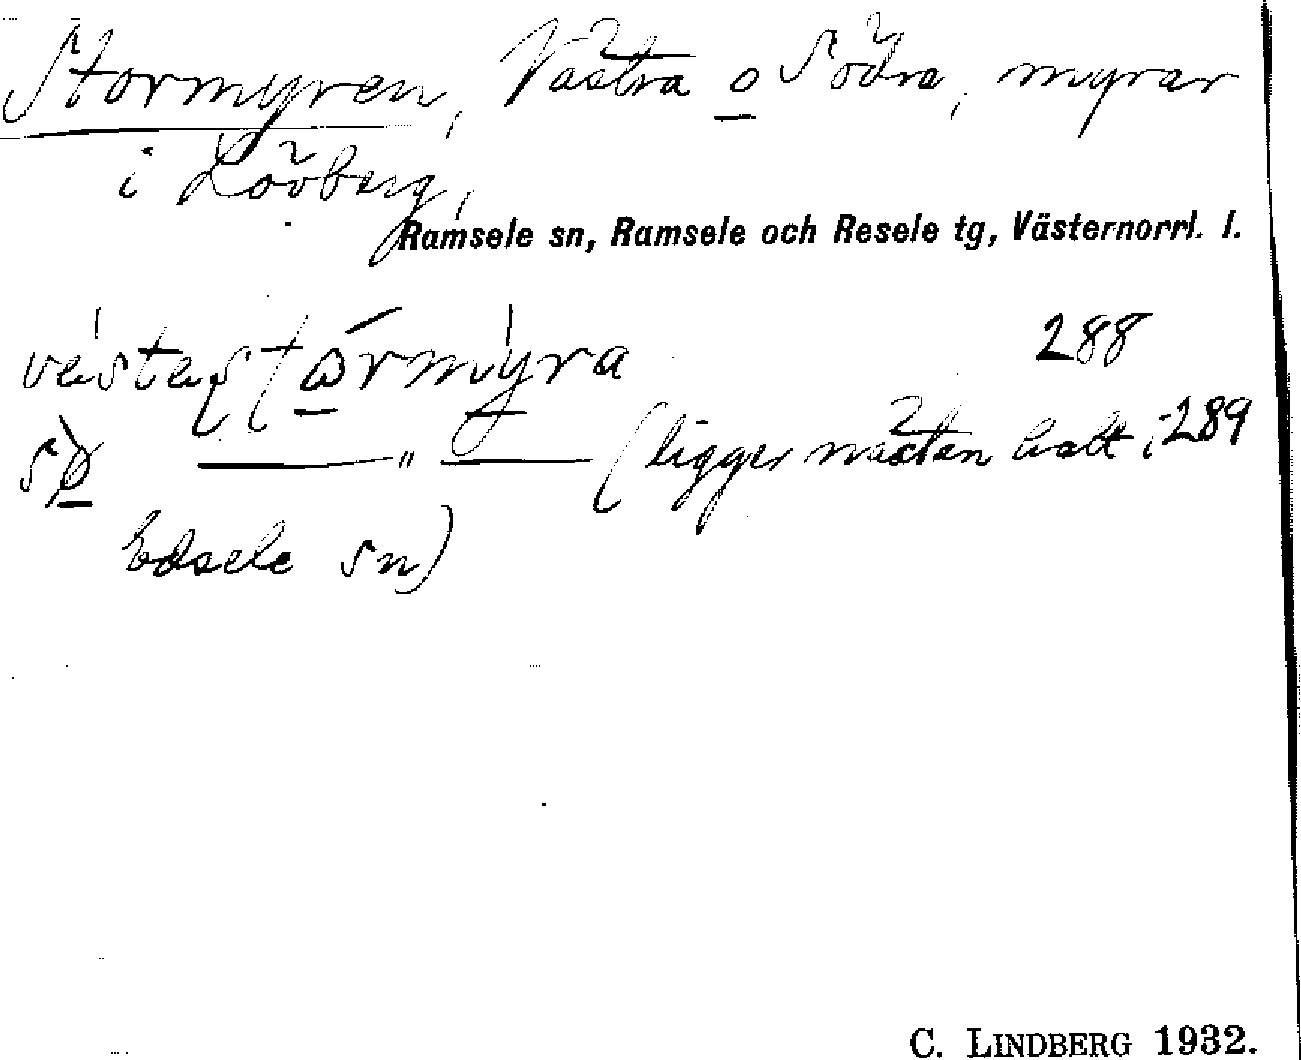 Stormyren, Västra o Södra, myrar
i Lövberg,
Ramsele sn, Ramsele och Resele tg, Västernorrl. l.
288
(ligger nästan halt i 289
Edsele sn)
C. LINDBERG 1932.